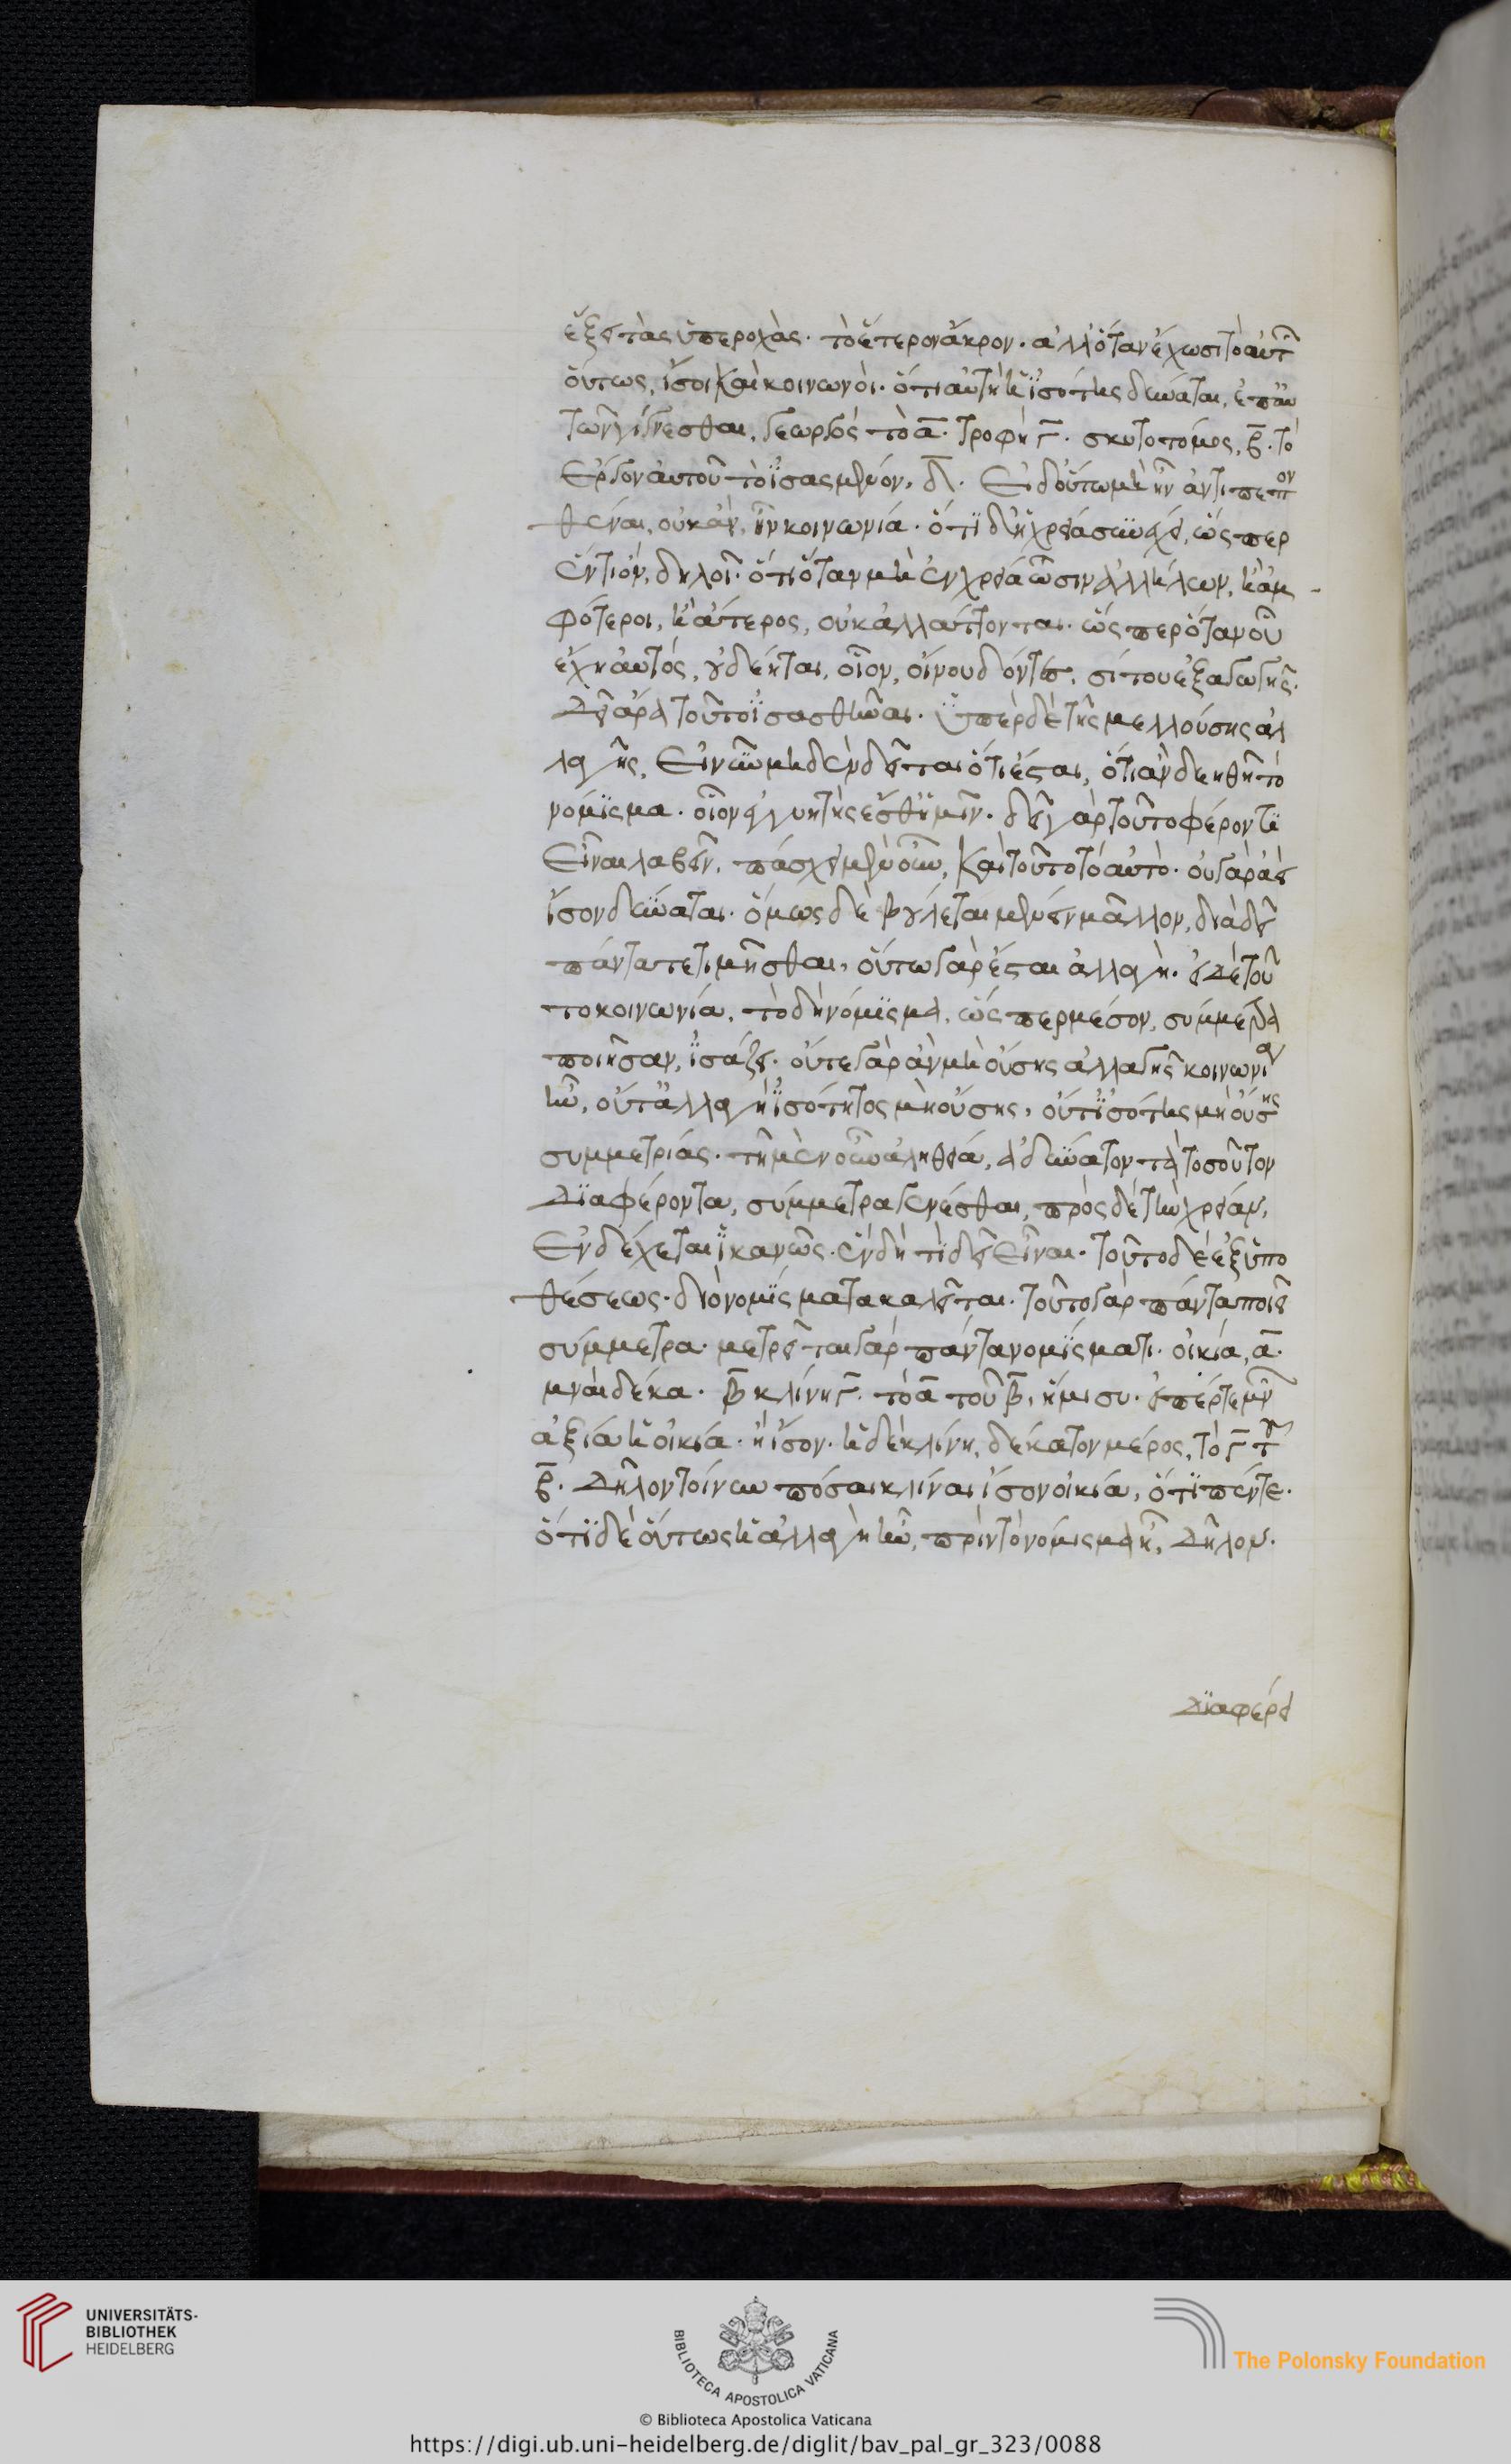 ἕξει τὰς ὑπεροχὰς. τὸ ἕτερον ἄκρον. ἀλλ' ὅταν ἔχωσι τὸ αὐτῶν
οὕτως, ἴσοι καὶ κοινωνοὶ. ὅτι αὕτη ἡ ἰσότης δύναται, ἐπ' αὐ
τῶν γίνεσθαι, γεωργὸς τὸ α. τροφὴ γ. σκυτοτόμος, β. τὸ
ἔργον αὐτοῦ τὸ ἰσασμένον, δ. Εἰ δ' οὕτω μὴ ἦν ἀντιπεπον
θέναι, οὐκ ἂν, ἦν κοινωνία. ὅτι δ' ἡ χρεία συνέχει, ὥσπερ
ἕν τι ὄν, δηλοῖ. ὅτι ὅταν μὴ ἐν χρεία ὦσιν ἀλλήλων, ἢ ἀμ
φότεροι, ἢ ἅτερος, οὐκ ἀλλάττονται. ὥσπερ ὅταν οὗ
ἔχη αὐτός, δέηται, οἷον, οἴνου διδόντες, σίτου ἐξαγωγῆς.
Δεῖ ἄρα τοῦτο ἰσασθῆναι. Ὑπὲρ δὲ τῆς μελλούσης ἀλ
λαγῆς, Εἰ νῦν μηδὲν δεῖται ὅτι ἔσται, ὅτι ἂν δεηθῆ τὸ
νόμισμα. οἷον ἐγγυητής ἐσθ' ἡμῖν. δεῖ γὰρ τοῦτο φέροντι
Εἶναι λαβεῖν. πάσχει μὲν οὖν, καὶ τοῦτο τὸ αὐτὸ. οὐ γὰρ ἀεὶ
ἴσον δύναται. ὅμως δὲ βούλεται μένειν μᾶλλον, διὸ δεῖ
πάντα τετιμῆσθαι, οὕτω γὰρ ἔσται ἀλλαγὴ. εἰ δὲ τοῦ
το κοινωνία. τὸ δὴ νόμισμα, ὥσπερ μέσον, σύμμετρα
ποιῆσαν, ἰσάζει. οὔτε γὰρ ἂν μὴ οὔσης ἀλλαγῆς κοινωνία
ἦν, οὔτ' ἀλλαγὴ ἰσότητος μὴ οὔσης, οὔτ' ἰσότης μὴ οὔσης
συμμετρίας. τῆ μὲν οὖν ἀληθεία, ἀδύνατον τὰ τοσοῦτον
Διαφέροντα, σύμμετρα γενέσθαι, πρὸς δὲ τὴν χρείαν,
Ἐνδέχεται ἱκανῶς. ἓν δή τι δεῖ Εἶναι. τοῦτο δὲ ἐξ ὑπο
θέσεως. διὸ νομίσματα καλεῖται. τοῦτο γὰρ πάντα ποιεῖ
σύμμετρα. μετρεῖται γὰρ πάντα νομίσματι. οἰκία, α.
μναῖ δέκα. β κλίνη γ. τὸ α τοῦ β, ἥμισυ. εἰ πέντε μνῶν
ἀξία ἡ οἰκία. ἢ ἴσον. ἡ δὲ κλίνη, δέκατον μέρος, τὸ γ τοῦ
β. Δῆλον τοίνυν πόσαι κλίναι ἴσον οἰκία, ὅτι πέντε.
ὅτι δὲ οὕτως ἡ ἀλλαγὴ ἦν, πρὶν τὸ νόμισμα ἦ, Δῆλον.
Διαφέρει
UNIVERSITÄTS-
BIBLIOTHEK
HEIDELBERG
BIBLIOTECA APOSTOLICA VATICANA
The Polonsky Foundation
© Biblioteca Apostolica Vaticana
https://digi.ub.uni-heidelberg.de/diglit/bav_pal_gr_323/0088